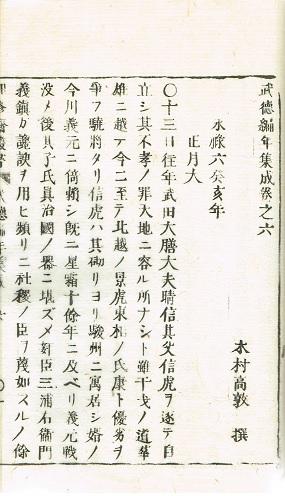 武德編年集成卷之六
木村高敦 撰
永祿六癸亥年
正月大
〇十三日往年武田大膳大夫晴信其父信虎ヲ逐テ自
立シ其不孝ノ罪大地ニ容ル所ナシト雖干戈ノ道華
雄ニ越テ今ニ至テ北越ノ景虎東相ノ氏康ト優劣ヲ
爭フ驍將タリ信虎ハ其砌リヨリ駿州ニ寓居シ婿ノ
今川義元ニ倚賴シ既ニ星霜十餘年ニ及ベリ義元戰
沒メ後其子氏眞治國ノ器ニ堪ズメ奸臣三浦右衞門
義鎭カ讒諛ヲ用ヒ頻リニ社稷ノ臣ヲ蔑如スルノ餘